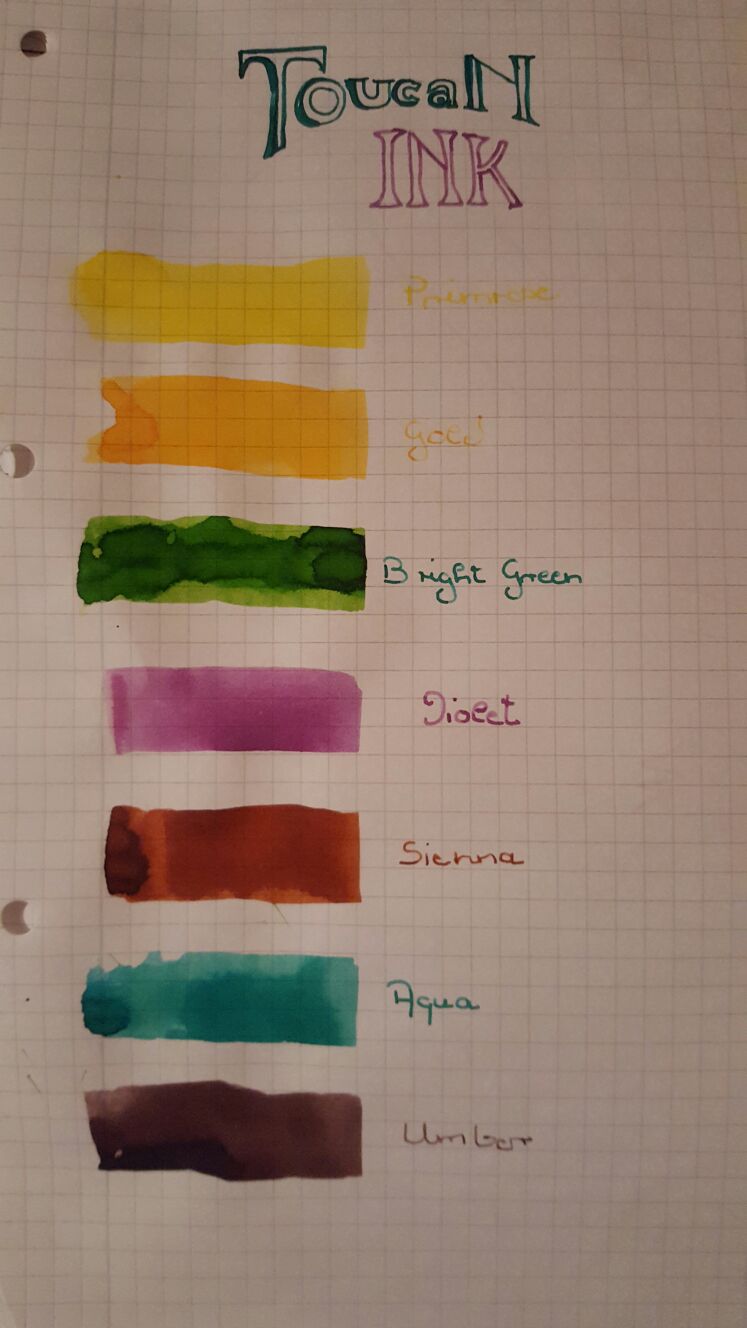 ToucaN
INK
Primrose
Gold
Bright Green
Violet
Sienna
Aqua
Umber